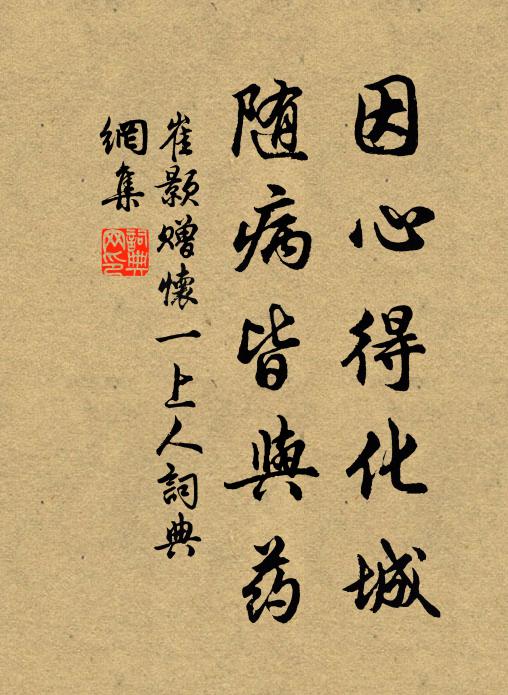 因心得化城
随病皆與药
崔颢赠懷一上人詞典
網集
詞典
网印